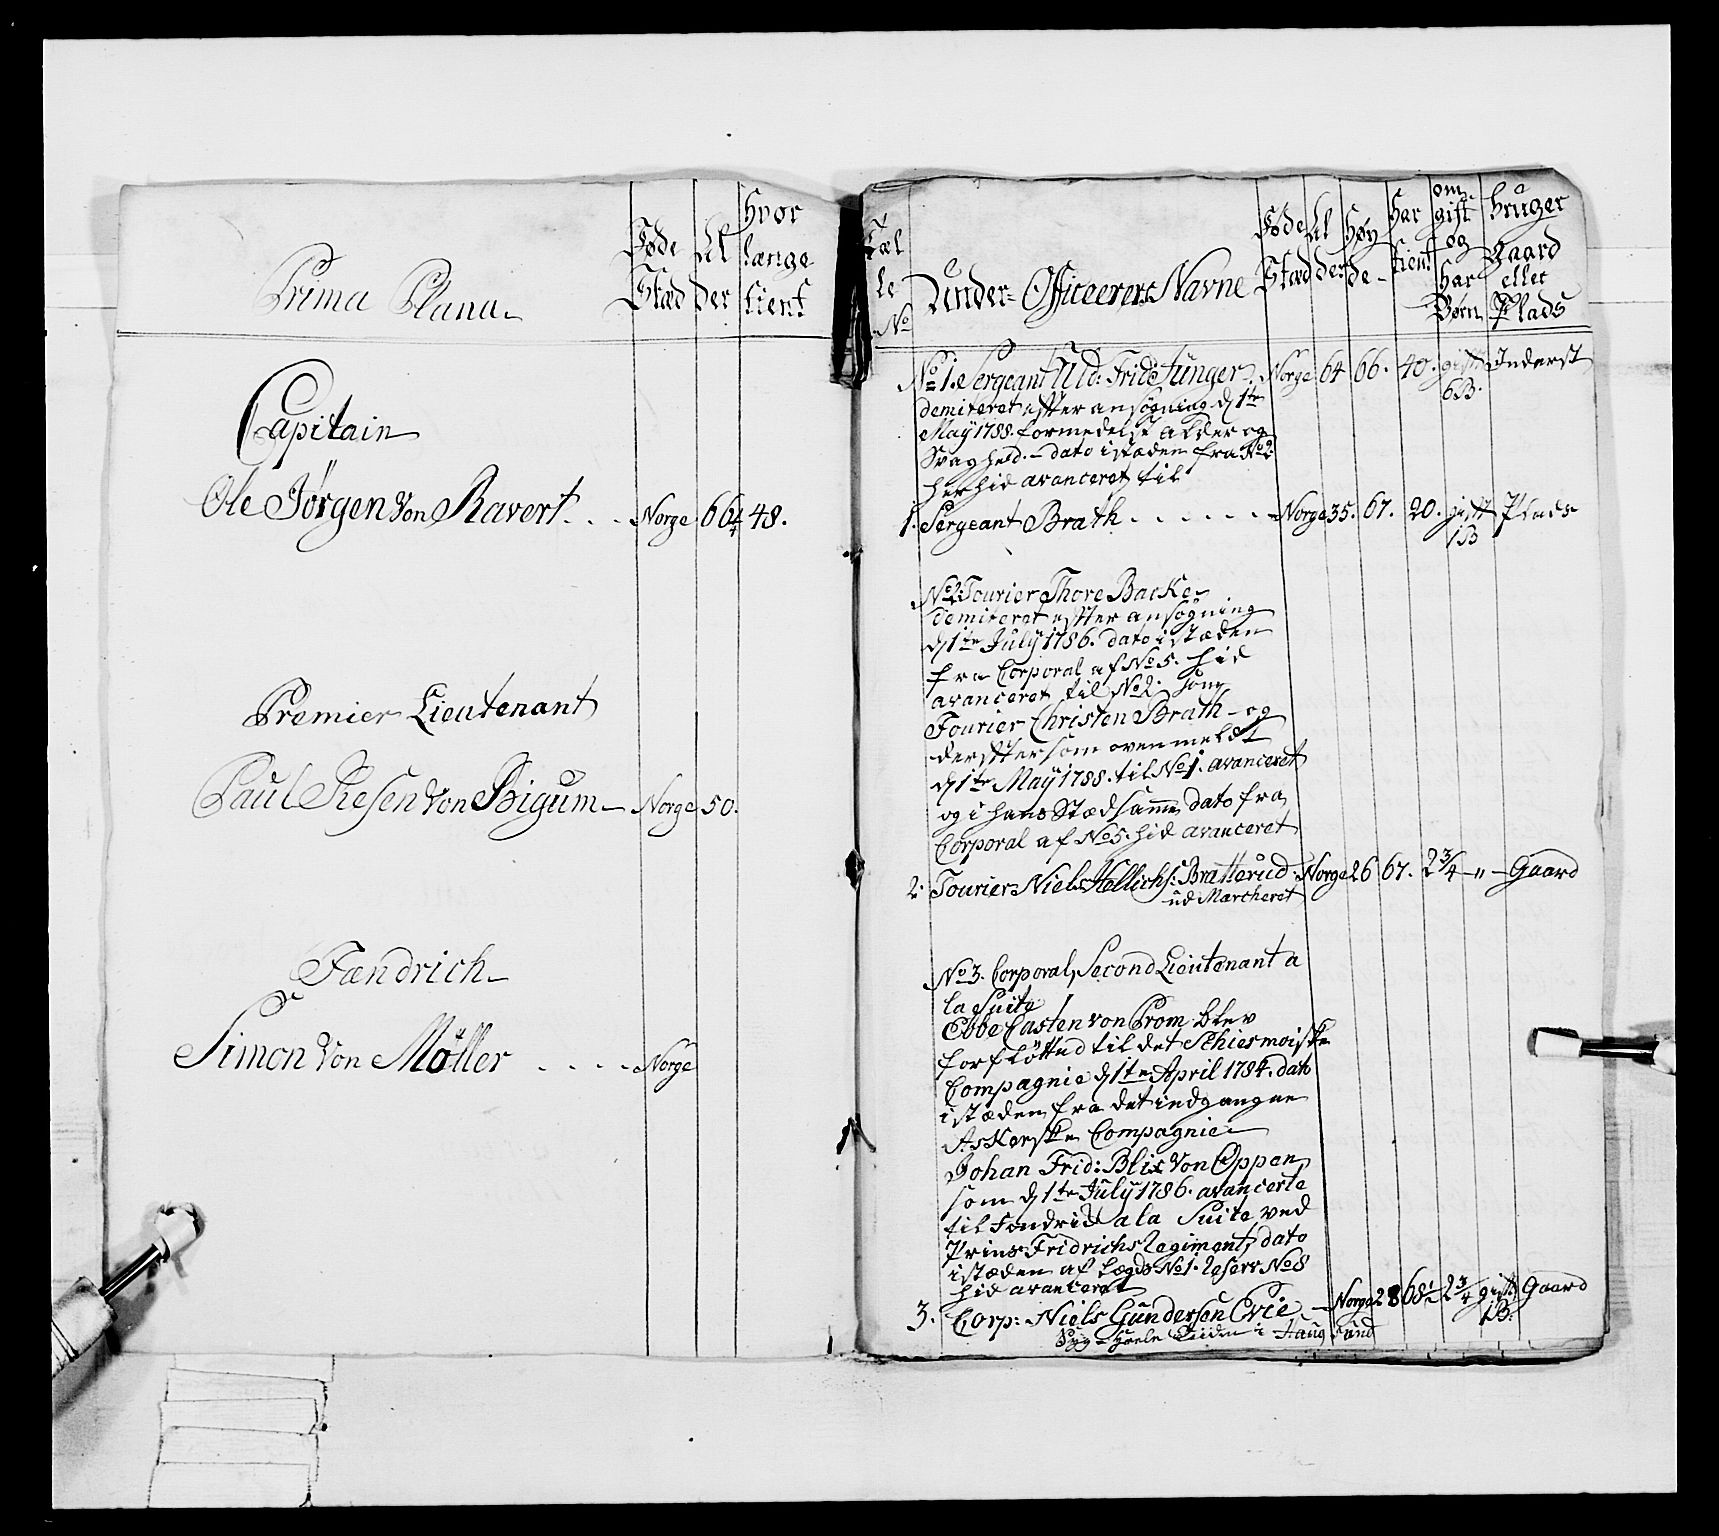 Prima Plana
Føde Stæd
Al der
Hvor længe tient
Capitain
Ole Jørgen von Ravert . . . Norge 66 1/4 48.
Premier Lieutenant
Paul Resen von Bigum Norge 50.
Fændrich
Simon von Møller . . . . Norge
Tæl le No
Under-Officeerers Navne
Føde Stæd
Al der
Høy de
Har tient
om gift og har Børn
bruger Gaard eller Plads
No 1. Sergeant Uld: Frid: Junger. Norge 64 66. 40. gift 6B. Inderst
demiteret efter ansøgning d 1te
May 1788. formedelst alder og
Svaghed. - dato istæden fra No 2
her hid avanceret til
1. Sergeant Brath . . . . . . Norge 35. 67. 20. gift 1B Plads
No 2. Fourier Thore Backe
demiteret efter ansøgning
d 1te July 1786. dato istæden
fra Corporal af No 5. hid
avanceret til No 2. som
Fourier Christen Brath - og
derefter som ovenmeldt
d 1te May 1788. til No 1. avanceret
og i hans Stæd samme dato fra
Corporal af No 5. hid avanceret
2. Fourier Niels Hellichs: Bratterud Norge 26 67. 2 3/4 - " - Gaard
ud Marcheret
No 3. Corporal, Second Lieutenant a
la Suite
Ebbe Casten von Prom blev
forfløtted til det Schiesmoiske
Compagnie d 1te April 1784. dato
istæden fra det indgangne
Askerske Compagnie
Johan Frid: Blix von Oppen
som d 1te July 1786. avancerte
til Fendrick a la Suite ved
Prins Fridrichs Regiment, dato
istæden af Lægds No 1. Reserv No 8
hid avanceret
3. Corp: Niels Gundersen Evie - Norge 28 68 1/2 2 3/4 gift 1B. Gaard
Syg heele Tiiden i Haugsund